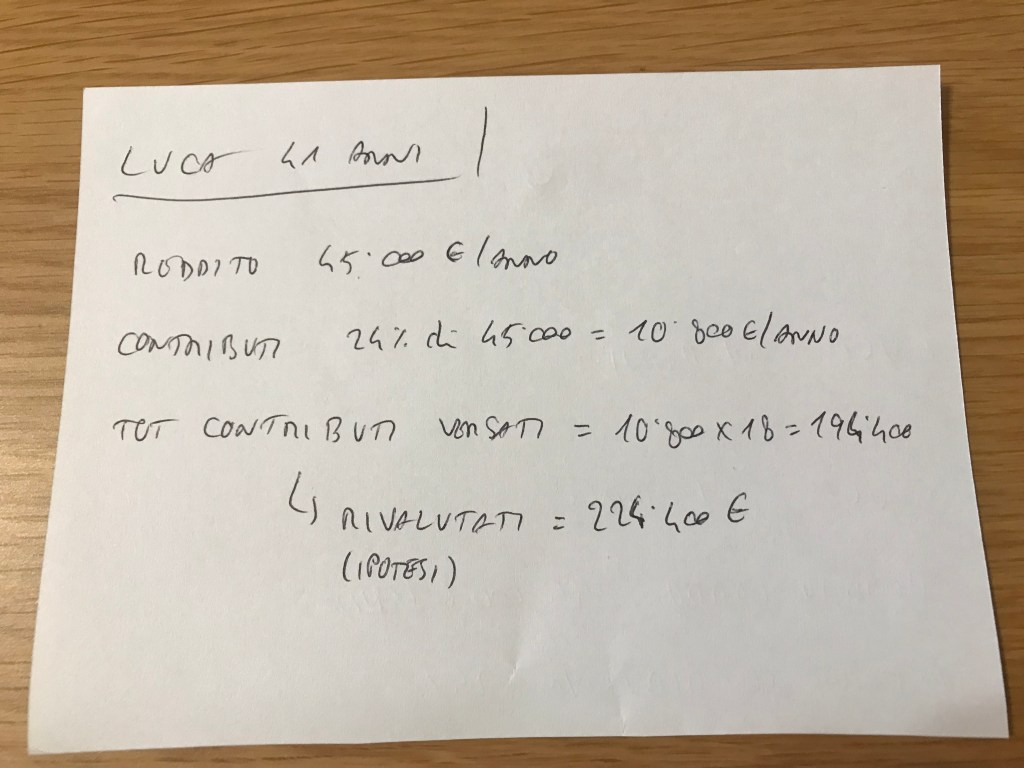 LUCA 41 ANNI
REDDITO 45.000 €/ANNO
CONTRIBUTI 24% di 45.000 = 10.800 €/ANNO
TOT CONTRIBUTI VERSATI = 10.800 x 18 = 194.400
↳ RIVALUTATI = 224.400 €
(IPOTESI)